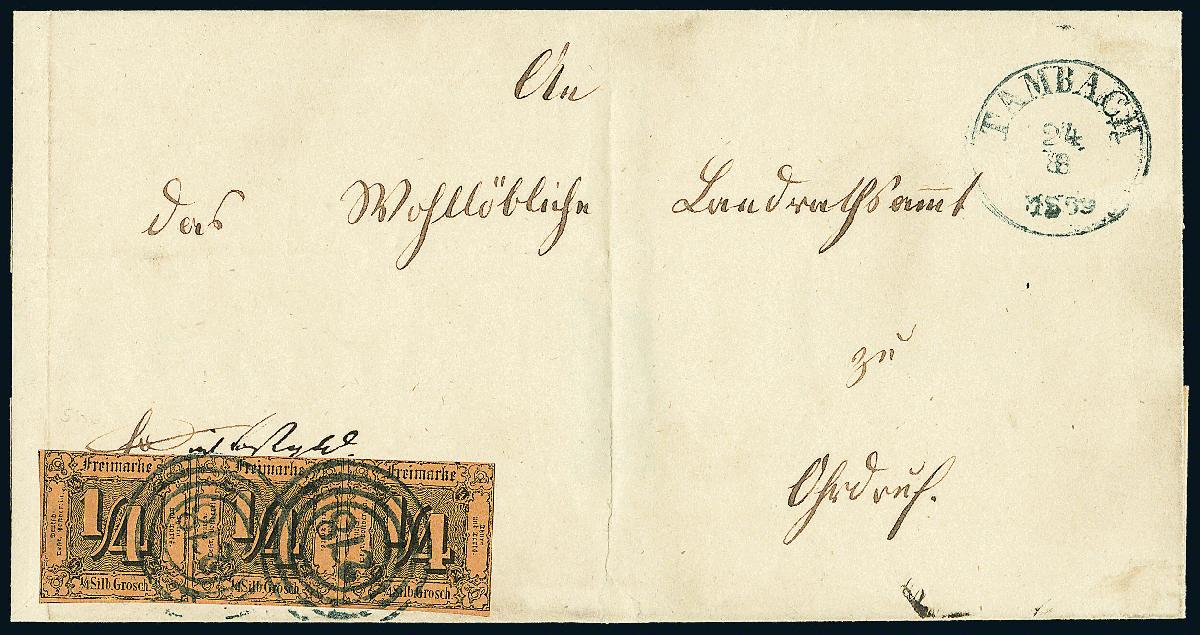 An
TAMBACH
24
8
1859
das Wohllöbliche Landrathsammt
zu
Ohrdruf.
Freimarke Freimarke Freimarke
1/4 1/4 1/4
1/4 Silb. Grosch. 1/4 Silb. Grosch. 1/4 Silb. Grosch.